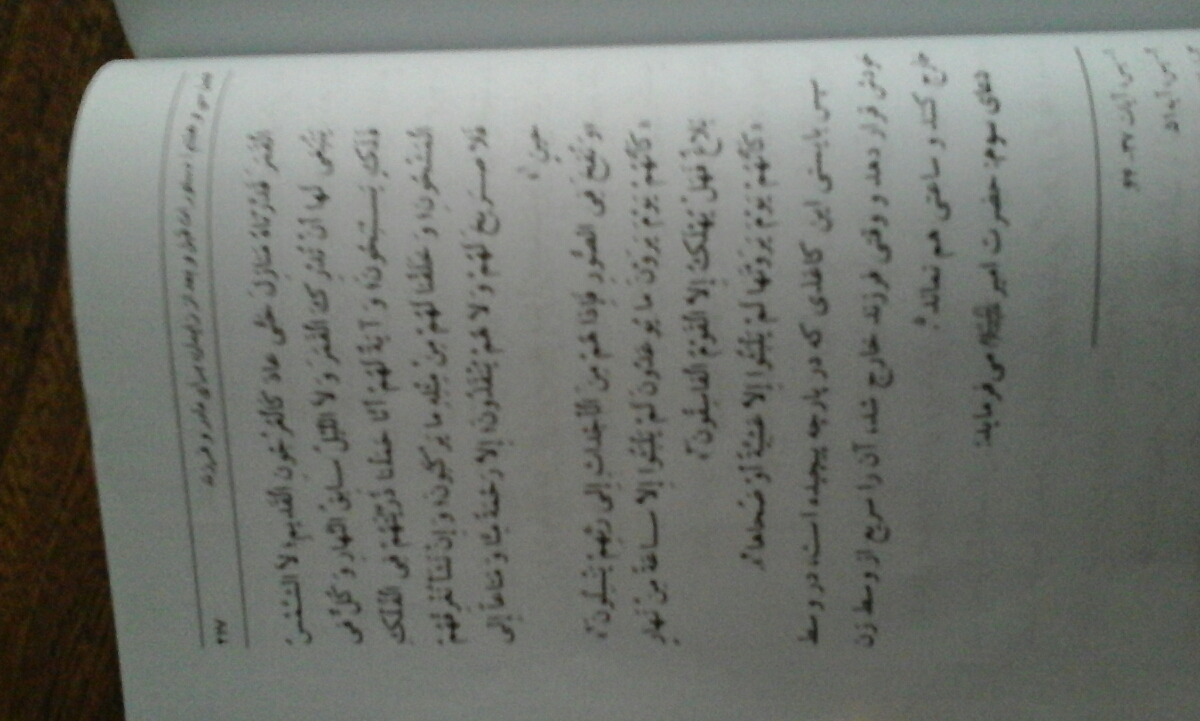 القَمَرَ قَدَّرْنَاهُ مَنَازِلَ حَتَّى عَادَ كَالْعُرْجُونِ الْقَدِيمِ، لَا الشَّمْسُ
يَنْبَغِي لَهَا أَنْ تُدْرِكَ الْقَمَرَ وَ لَا اللَّيْلُ سَابِقُ النَّهَارِ وَ كُلٌّ فِي
فَلَكٍ يَسْبَحُونَ، وَ آيَةٌ لَهُمْ أَنَّا حَمَلْنَا ذُرِّيَّتَهُمْ فِي الْفُلْكِ
الْمَشْحُونِ، وَ خَلَقْنَا لَهُمْ مِنْ مِثْلِهِ مَا يَرْكَبُونَ، وَ إِنْ نَشَأْ نُغْرِقْهُمْ
فَلَا صَرِيخَ لَهُمْ وَ لَا هُمْ يُنْقَذُونَ، إِلَّا رَحْمَةً مِنَّا وَ مَتَاعاً إِلَى
حِينٍ»
«وَ نُفِخَ فِي الصُّورِ فَإِذَا هُمْ مِنَ الْأَجْدَاثِ إِلَى رَبِّهِمْ يَنْسِلُونَ»
«كَأَنَّهُمْ يَوْمَ يَرَوْنَ مَا يُوعَدُونَ لَمْ يَلْبَثُوا إِلَّا سَاعَةً مِنْ نَهَارٍ
بَلَاغٌ فَهَلْ يُهْلَكُ إِلَّا الْقَوْمُ الْفَاسِقُونَ»
«كَأَنَّهُمْ يَوْمَ يَرَوْنَهَا لَمْ يَلْبَثُوا إِلَّا عَشِيَّةً أَوْ ضُحَاهَا»
سپس بایستی این کاغذی که در پارچه پیچیده است، در وسط
خودش قرار دهد و وقتی فرزند خارج شد، آن را سریع از وسط زن
خارج کند و ساعتی هم نماند.
دعای سوم: حضرت امیر می‌فرماید: